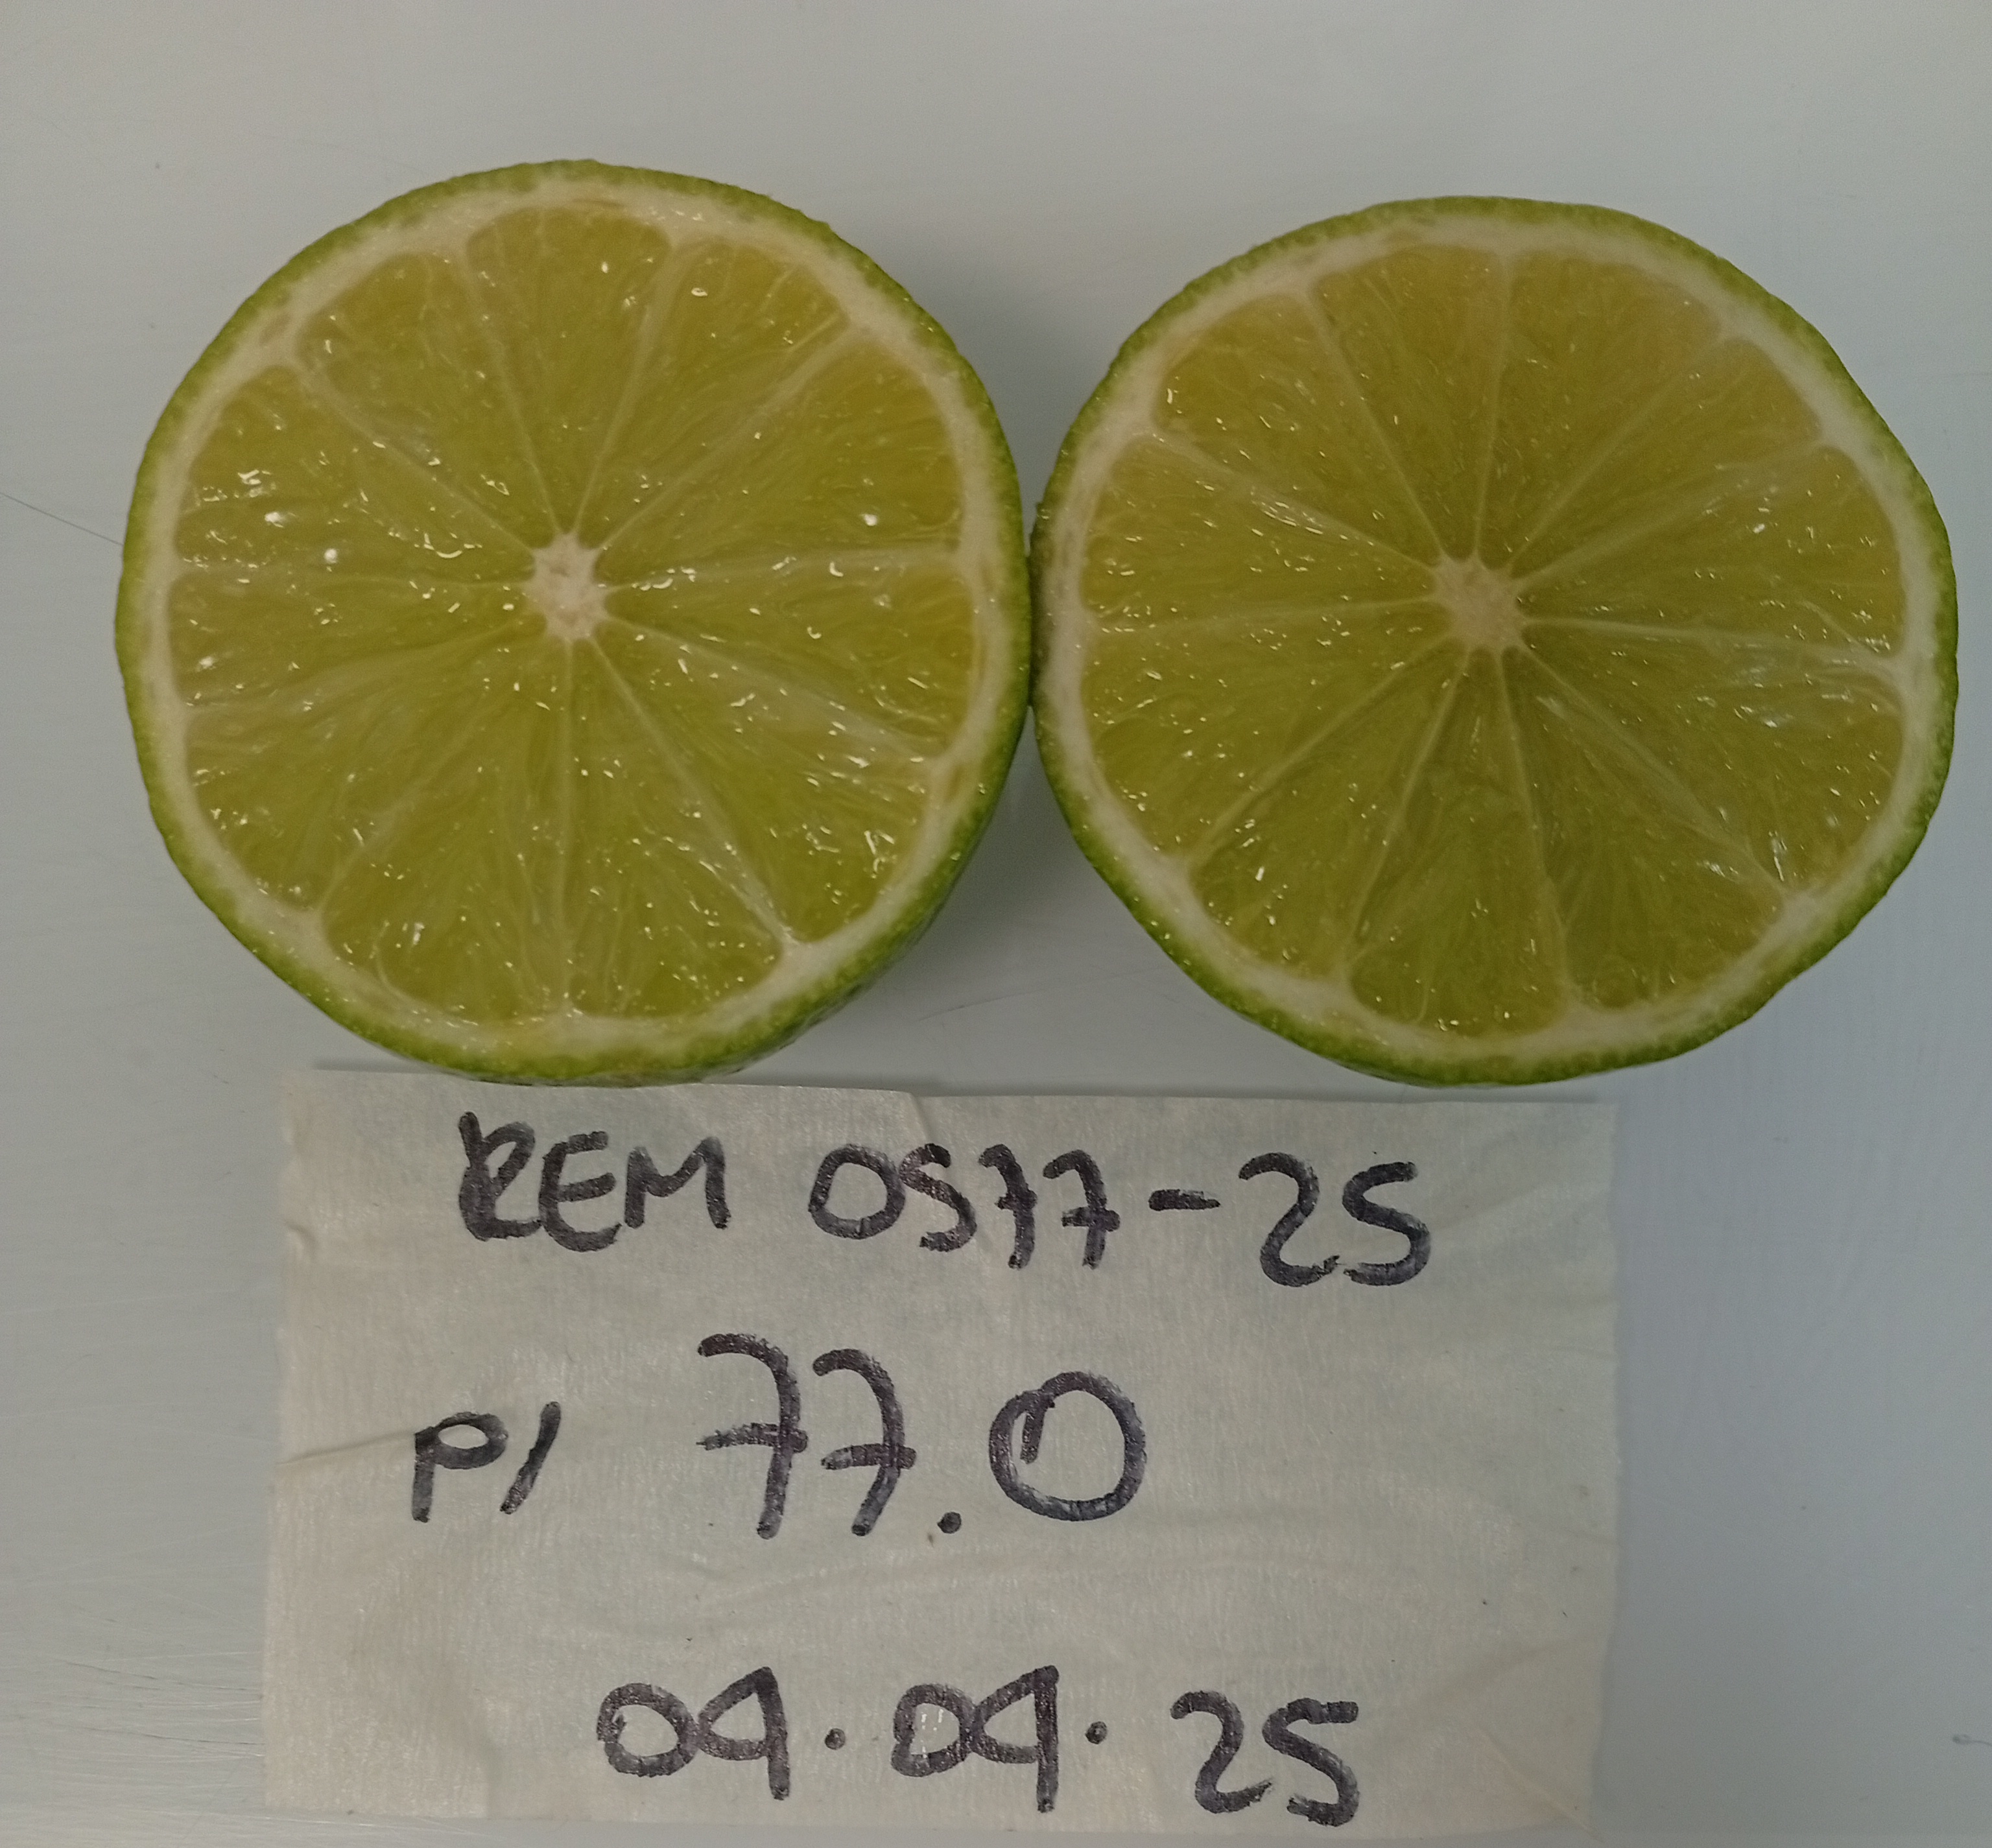 REM 0577-25
P/ 77.0
09.09.25